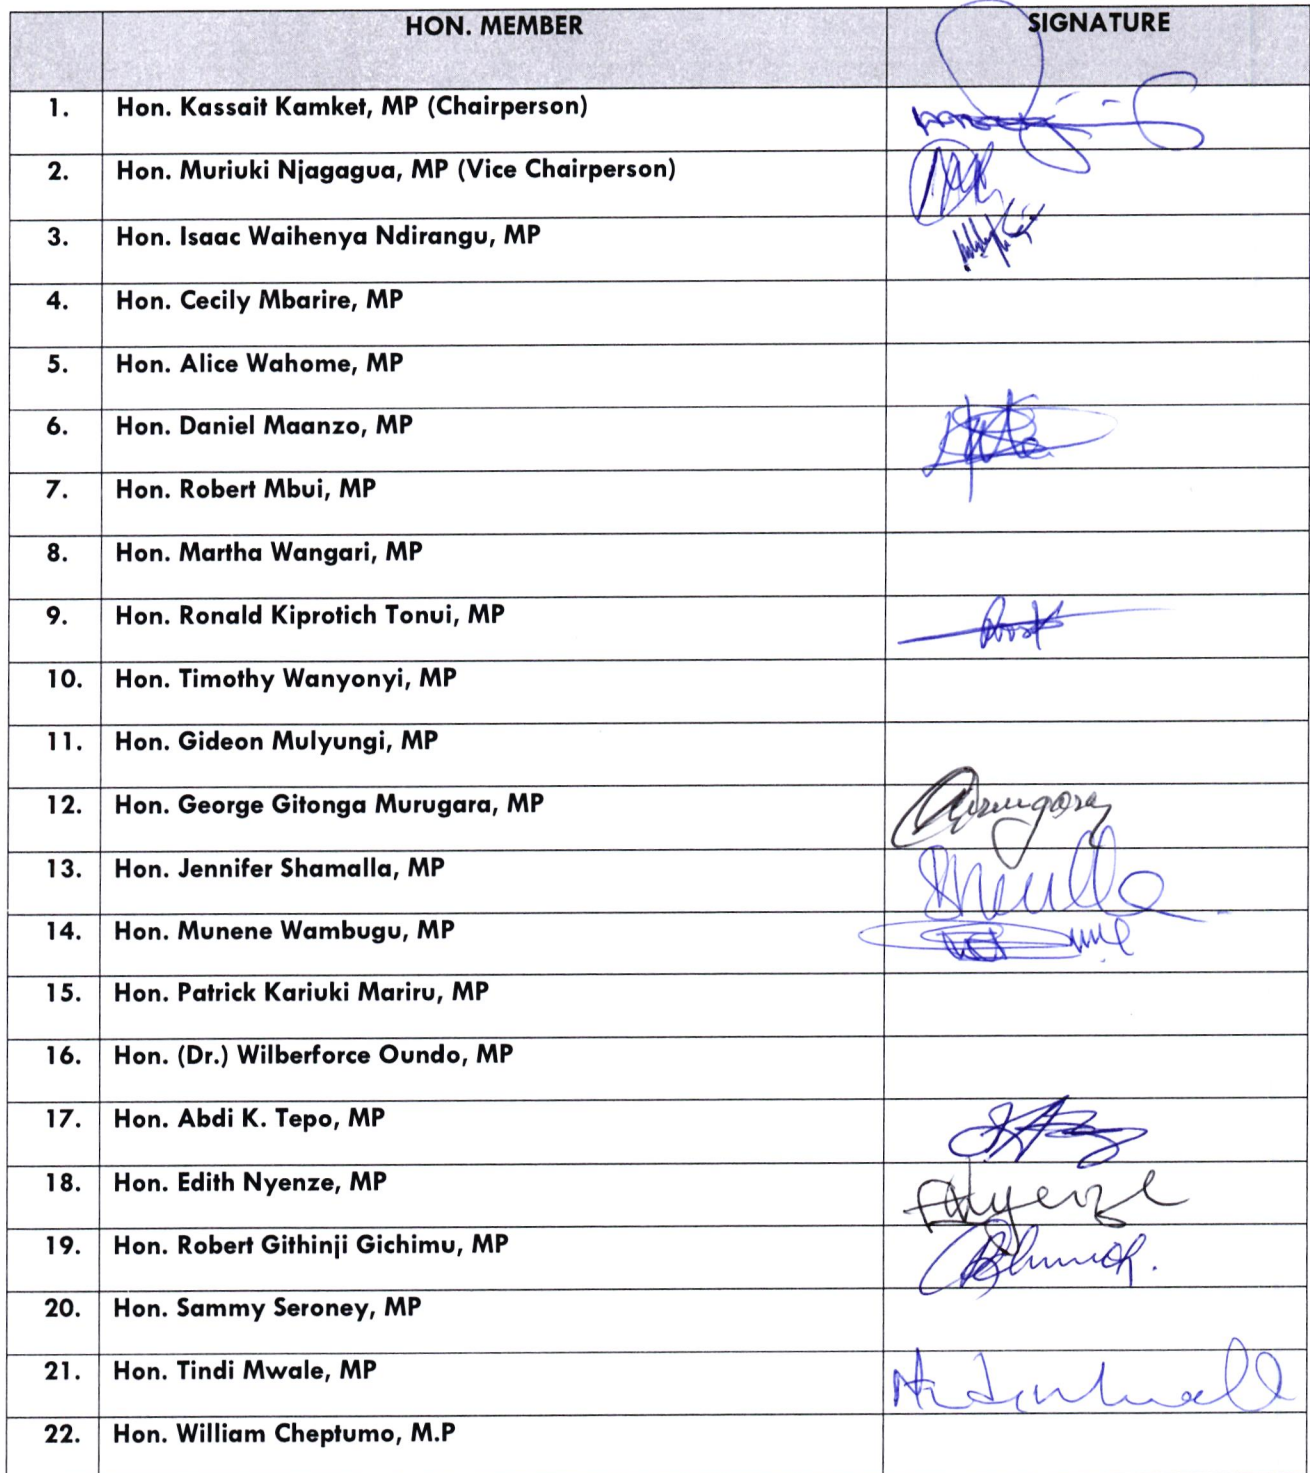 HON. MEMBER SIGNATURE
1. Hon. Kassait Kamket, MP (Chairperson)
2. Hon. Muriuki Njagagua, MP (Vice Chairperson)
3. Hon. Isaac Waihenya Ndirangu, MP
4. Hon. Cecily Mbarire, MP
5. Hon. Alice Wahome, MP
6. Hon. Daniel Maanzo, MP
7. Hon. Robert Mbui, MP
8. Hon. Martha Wangari, MP
9. Hon. Ronald Kiprotich Tonui, MP
10. Hon. Timothy Wanyonyi, MP
11. Hon. Gideon Mulyungi, MP
12. Hon. George Gitonga Murugara, MP
13. Hon. Jennifer Shamalla, MP
14. Hon. Munene Wambugu, MP
15. Hon. Patrick Kariuki Mariru, MP
16. Hon. (Dr.) Wilberforce Oundo, MP
17. Hon. Abdi K. Tepo, MP
18. Hon. Edith Nyenze, MP
19. Hon. Robert Githinji Gichimu, MP
20. Hon. Sammy Seroney, MP
21. Hon. Tindi Mwale, MP
22. Hon. William Cheptumo, M.P